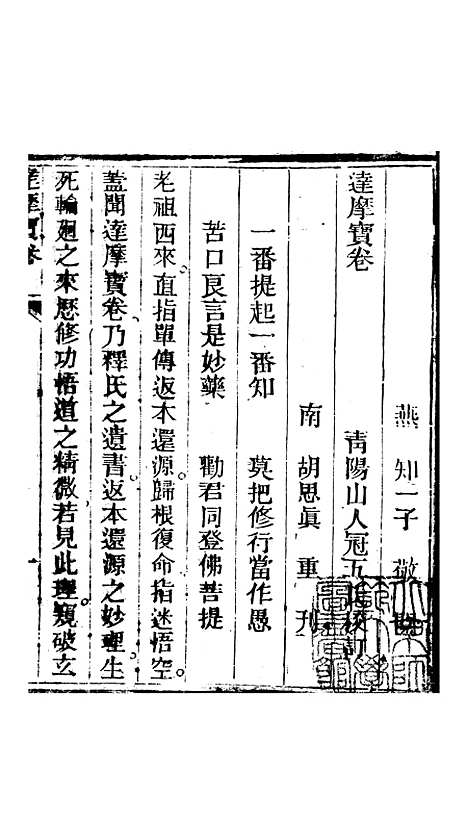 燕 知一子 敬
達摩寶卷
青陽山人冠五氏校訂
南 胡思眞 重 刋
一番提起一番知 莫把修行當作愚
苦口良言是妙藥 勸君同登佛菩提
老祖西來直指單傳返本還源歸根復命指迷悟空。
蓋聞達摩寶卷乃釋氏之遺書返本還源之妙理生
死輪廻之來歷修功悟道之精微若見此理窺破玄
達摩寶卷 一